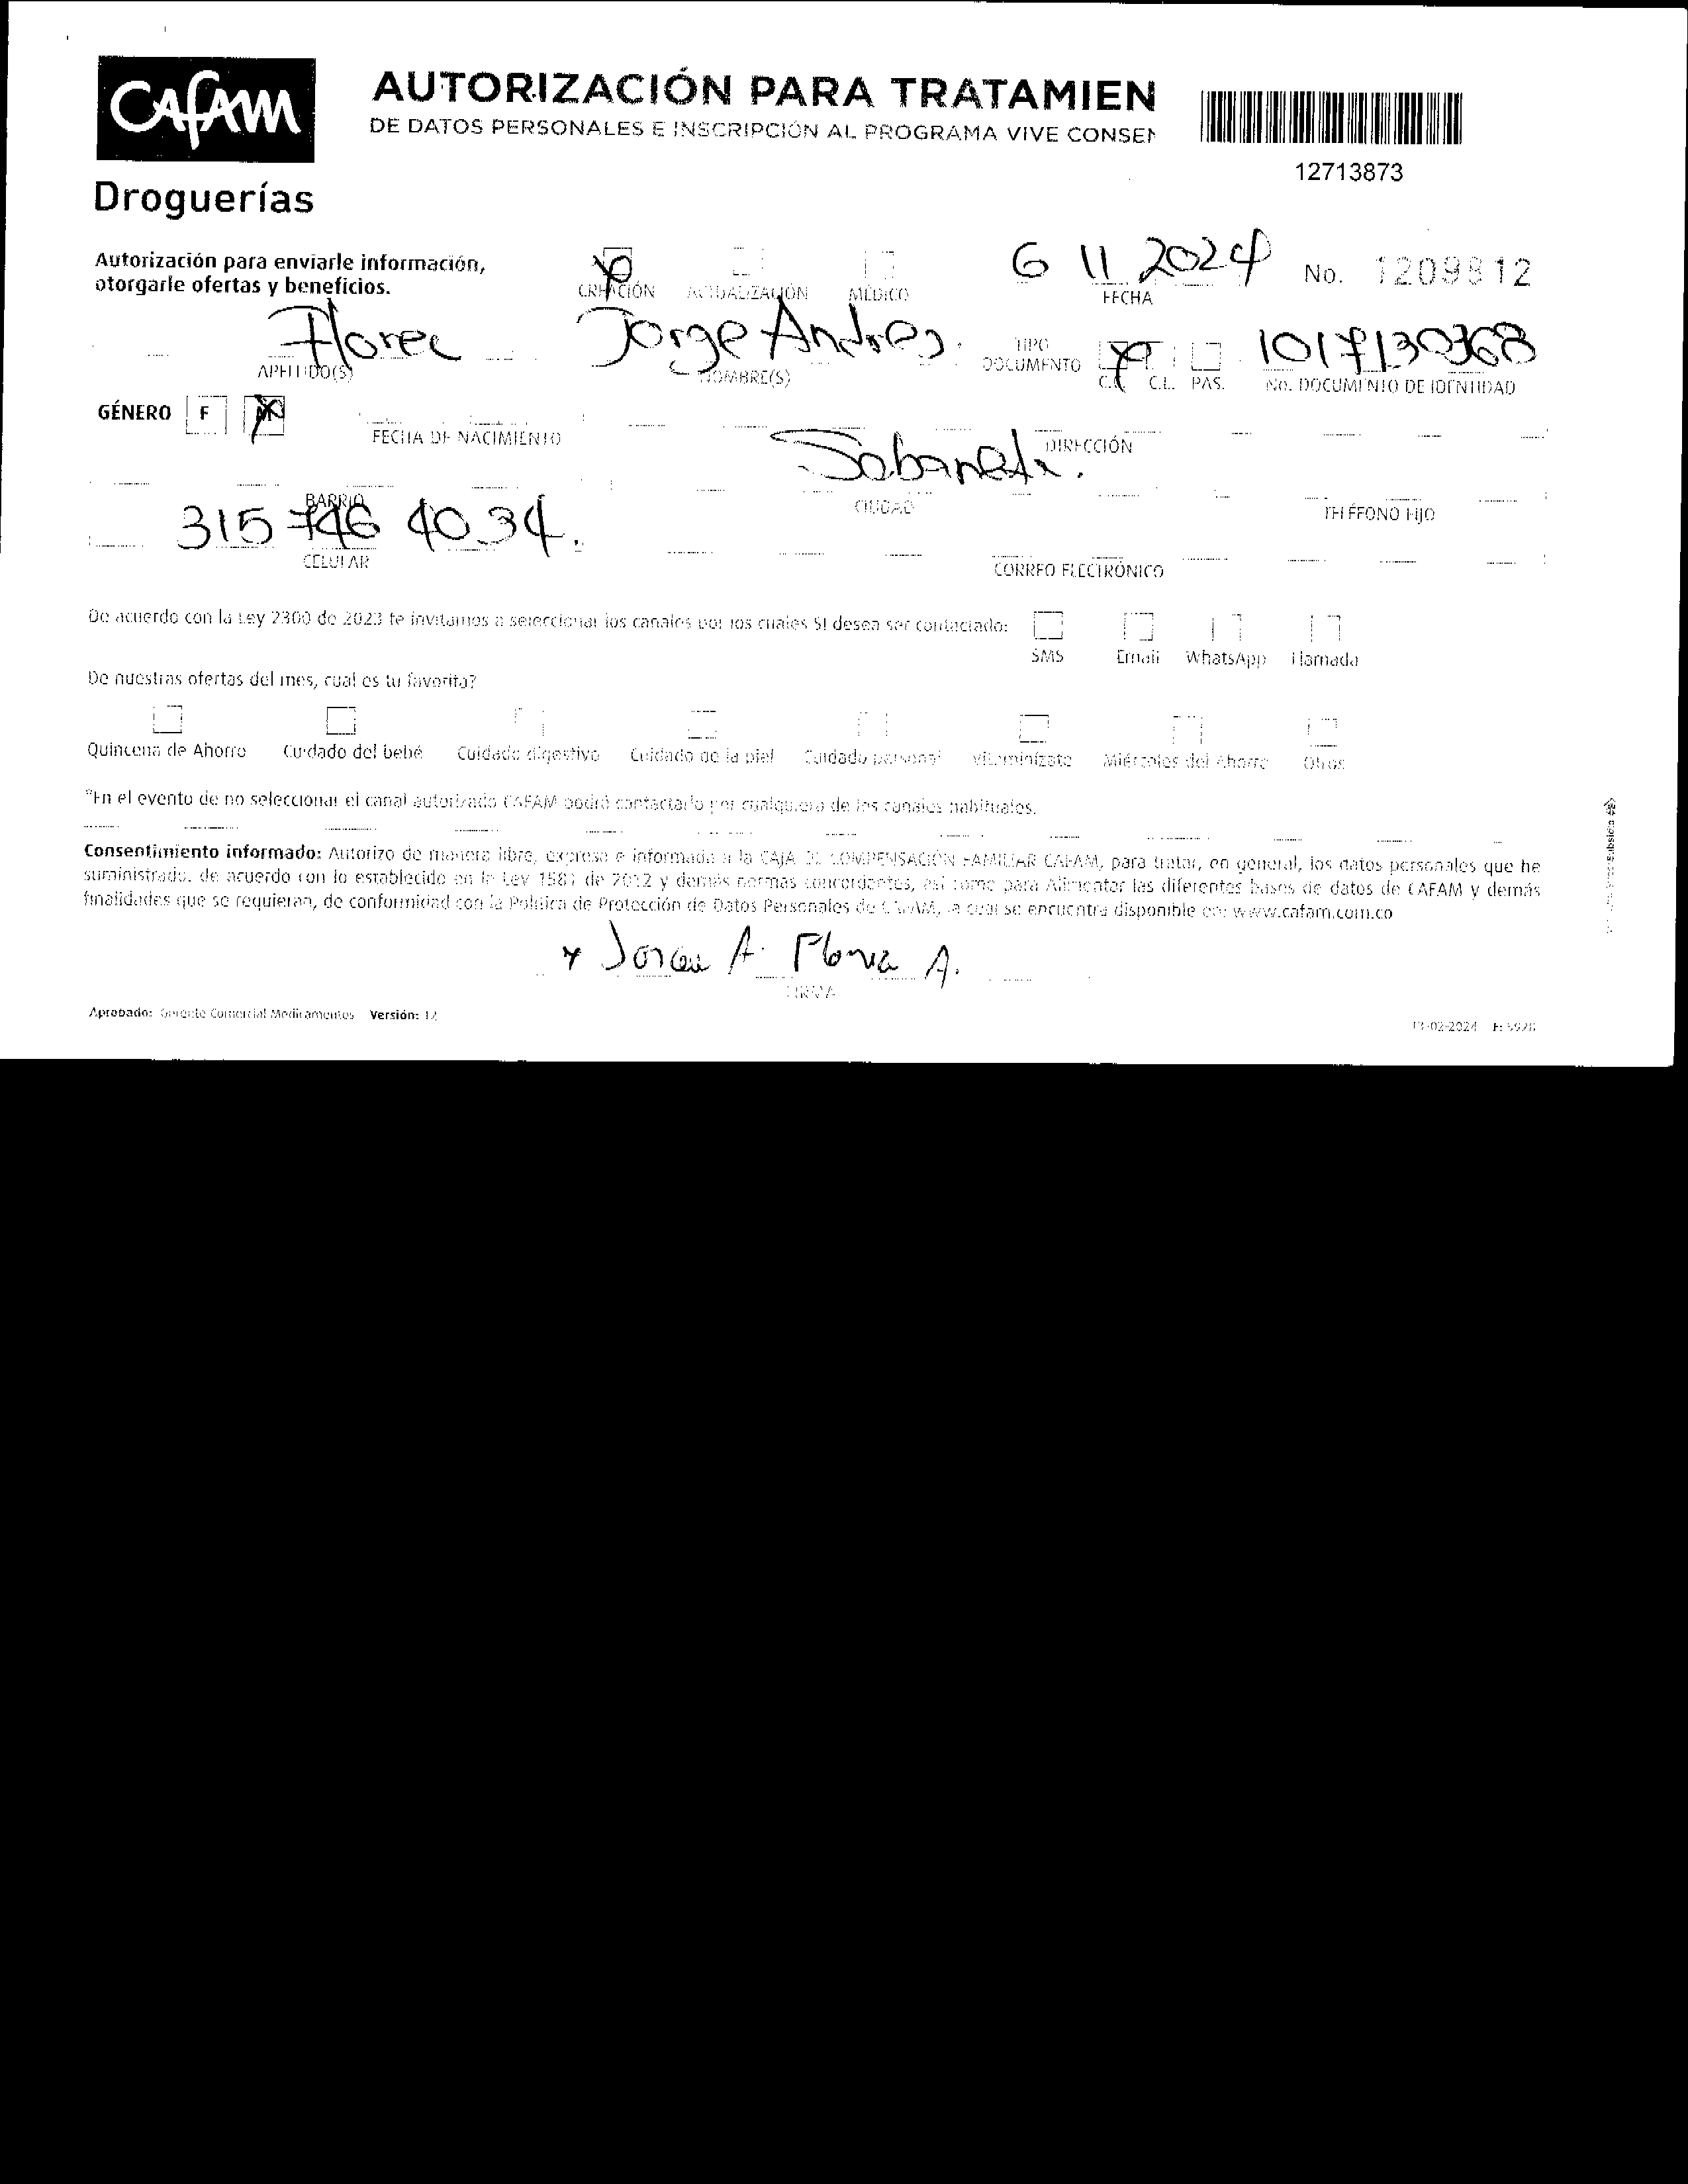 CAFAM
Droguerías
AUTORIZACIÓN PARA TRATAMIEN
DE DATOS PERSONALES E INSCRIPCIÓN AL PROGRAMA VIVE CONSEN
12713873
Autorización para enviarle información,
otorgarle ofertas y beneficios.
CREACIÓN ACTUALIZACIÓN MÉDICO
6 11 2024
FECHA
No. 1209812
Florec Jorge Andres
APELLIDO(S) NOMBRE(S)
TIPO
DOCUMENTO
C.C. C.E. PAS.
1017130368
No. DOCUMENTO DE IDENTIDAD
GÉNERO F M
FECHA DE NACIMIENTO
DIRECCIÓN
Sabaneta.
BARRIO CIUDAD TELÉFONO FIJO
315 746 4034.
CELULAR CORREO ELECTRÓNICO
De acuerdo con la Ley 2300 de 2023 te invitamos a seleccionar los canales por los cuales SI desea ser contactado:
SMS Email WhatsApp Llamada
De nuestras ofertas del mes, cual es tu favorita?
Quincena de Ahorro Cuidado del bebé Cuidado digestivo Cuidado de la piel Cuidado personal Vitaminízate Miércoles del Ahorro Otros
*En el evento de no seleccionar el canal autorizado CAFAM podrá contactarlo por cualquiera de los canales habituales.
Consentimiento informado: Autorizo de manera libre, expresa e informada a la CAJA DE COMPENSACIÓN FAMILIAR CAFAM, para tratar, en general, los datos personales que he
suministrado, de acuerdo con lo establecido en la Ley 1581 de 2012 y demás normas concordantes, así como para Alimentar las diferentes bases de datos de CAFAM y demás
finalidades que se requieran, de conformidad con la Política de Protección de Datos Personales de CAFAM, la cual se encuentra disponible en: www.cafam.com.co
x Jorge A. Florez A.
FIRMA
Aprobado: Gerente Comercial Medicamentos Versión: 12
13-02-2024